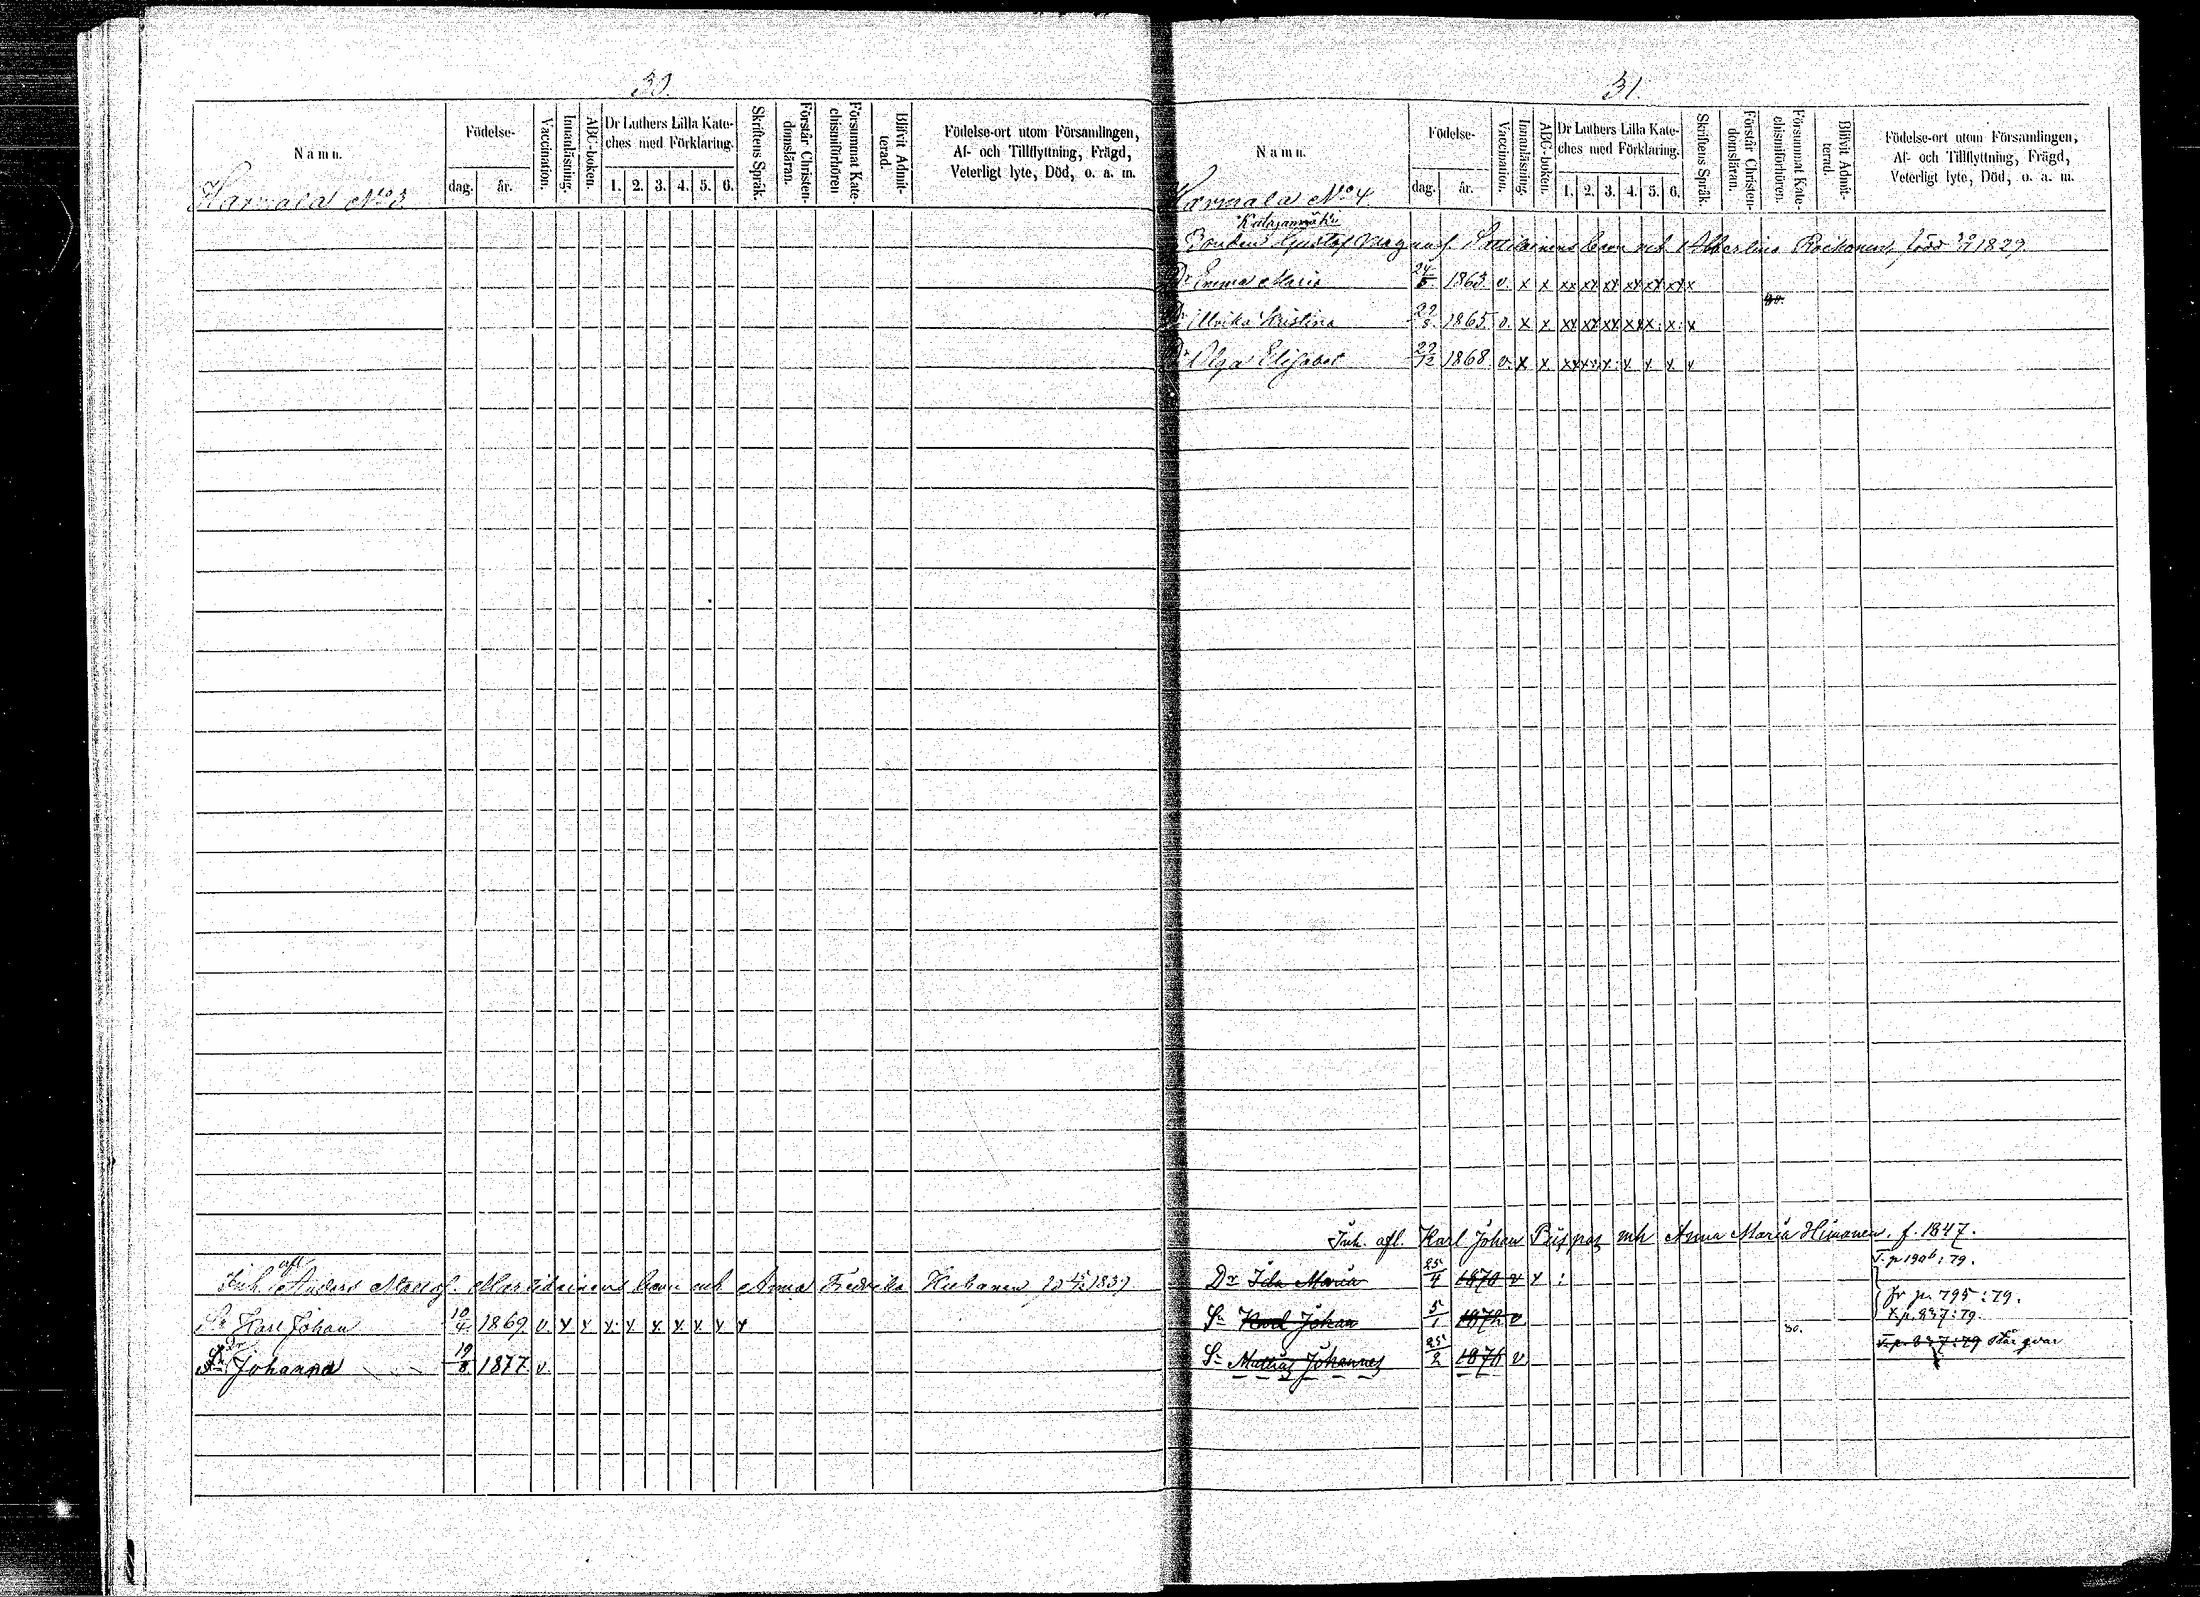 30.
Namn.
Födelse-
dag. år.
Vaccination.
Innanläsning.
ABC-boken.
Dr Luthers Lilla Kate-
ches med Förklaring.
1. 2. 3. 4. 5. 6.
Skriftens Språk.
Förstår Christen-
domsläran.
Försummat Kate-
chismiförhören
Blifvit Admit-
terad.
Födelse-ort utom Församlingen,
Af- och Tillflyttning, Frägd,
Veterligt lyte, Död, o. a. m.
Harmala No 3
Inh. afl. Anders barn mh Anna Fredrika 1837
Sn Karl Johan 10/4 1869 v. x x x: x x x x x x
Dr Johanna 19/8 1877 v.
31.
Namn.
Födelse-
dag. år.
Vaccination.
Innanläsning.
ABC-boken.
Dr Luthers Lilla Kate-
ches med Förklaring.
1. 2. 3. 4. 5. 6.
Skriftens Språk.
Förstår Christen-
domsläran.
Försummat Kate-
chismiförhören.
Blifvit Admit-
terad.
Födelse-ort utom Församlingen,
Af- och Tillflyttning, Frägd,
Veterligt lyte, Död, o. a. m.
Harmala No 4
Bonden Gustaf Magnus barn mh Albertina född 1829
Dr Emma Maria 24/5 1863 v. x x xx xx xx xx xx xx x
80.
Dr Ulrika Kristina 1865 v. x x xx xx xx xx x: x: x
Dr Olga Elisabet 1868 v. x x xx x: x: x x x x
Inh. afl. Karl Johan mh Anna Maria Himanen f. 1847.
Dr Ida Maria 25/4 1870 v x : T. p 190b: 79.
fr p. 795: 79.
Sn Karl Johan 5/1 1872 v T. p. 837: 79.
80.
Sn Mattias Johannes 25/2 1876 v T. p. 837: 79 står qvar